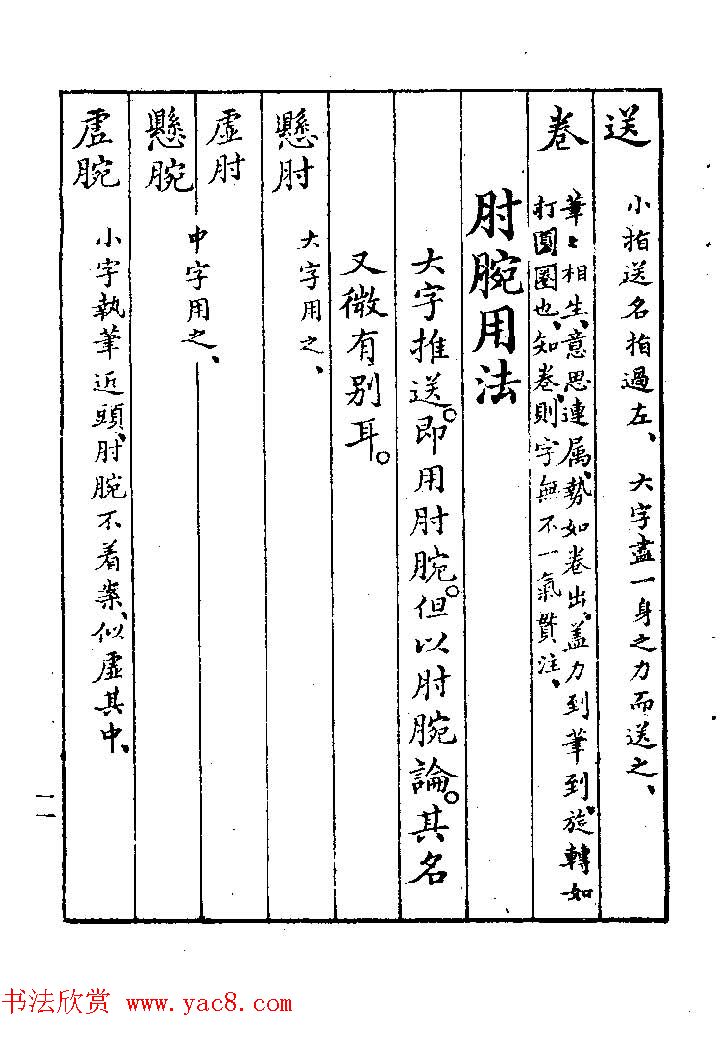 送 小指送名指過左、大字盡一身之力而送之、
卷 筆〻相生、意思連属、勢如卷出、蓋力到筆到、旋轉如
打圓圈也、知卷、則字無不一氣貫注、
肘腕用法
大字推送。即用肘腕。但以肘腕論。其名
又微有別耳。
懸肘 大字用之、
虛肘
懸腕 中字用之、
虛腕 小字執筆近頭、肘腕不着案、似虛其中、
一一
书法欣赏 www.yac8.com